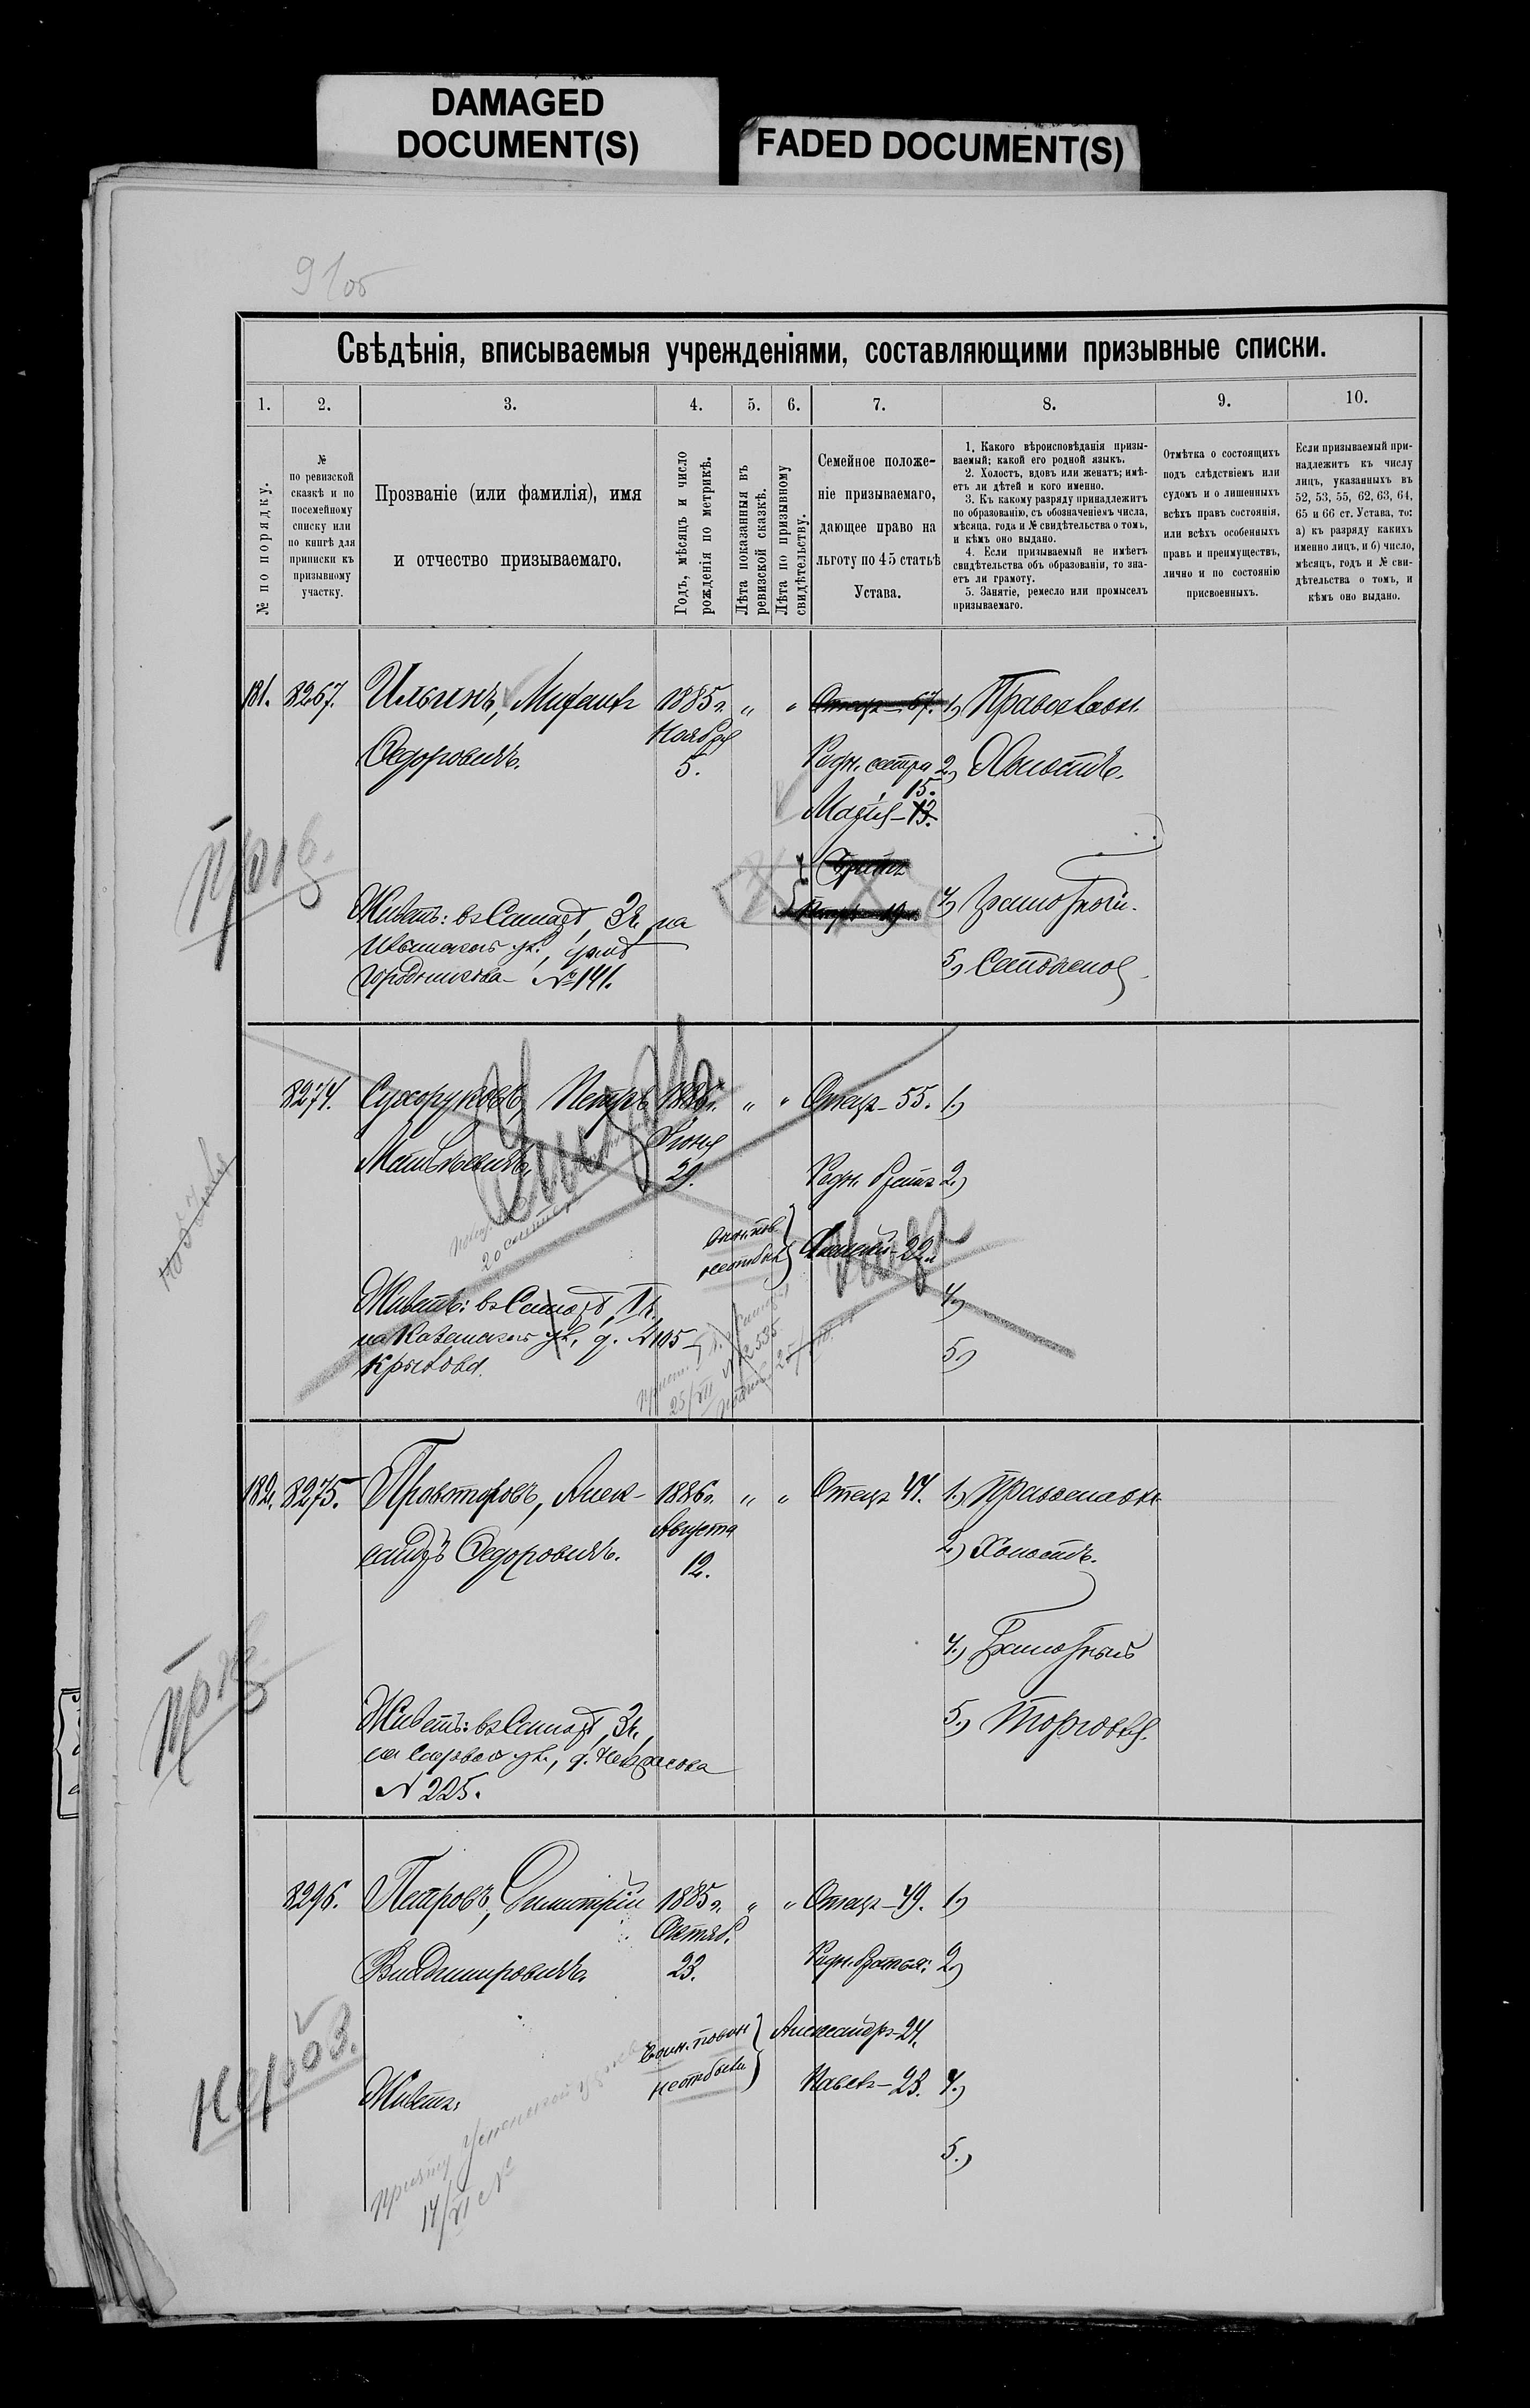 DAMAGED
DOCUMENT(S)
FADED DOCUMENT(S)
91об
Свѣдѣнія, вписываемыя учрежденіями, составляющими призывные списки.
1. 2. 3. 4. 5. 6. 7. 8. 9. 10.
№ по порядку.
№
по ревизской
сказкѣ и по
посемейному
списку или
по книгѣ для
приписки къ
призывному
участку.
Прозваніе (или фамилія), имя
и отчество призываемаго.
Годъ, мѣсяцъ и число
рожденія по метрикѣ.
Лѣта показанныя въ
ревизской сказкѣ.
Лѣта по призывному
свидѣтельству.
Семейное положе-
ніе призываемаго,
дающее право на
льготу по 45 статьѣ
Устава.
1. Какого вѣроисповѣданія призы-
ваемый; какой его родной языкъ.
2. Холостъ, вдовъ или женатъ; имѣ-
етъ ли дѣтей и кого именно.
3. Къ какому разряду принадлежитъ
по образованію, съ обозначеніемъ числа,
мѣсяца, года и № свидѣтельства о томъ,
и кѣмъ оно выдано.
4. Если призываемый не имѣетъ
свидѣтельства объ образованіи, то зна-
етъ ли грамоту.
5. Занятіе, ремесло или промыселъ
призываемаго.
Отмѣтка о состоящихъ
подъ слѣдствіемъ или
судомъ и о лишенныхъ
всѣхъ правъ состоянія,
или всѣхъ особенныхъ
правъ и преимуществъ,
лично и по состоянію
присвоенныхъ.
Если призываемый при-
надлежитъ къ числу
лицъ, указанныхъ въ
52, 53, 55, 62, 63, 64,
65 и 66 ст. Устава, то:
а) къ разряду какихъ
именно лицъ, и б) число,
мѣсяцъ, годъ и № сви-
дѣтельства о томъ, и
кѣмъ оно выдано.
181. 8267. Ильинъ, Михаилъ 1885г. " " Отецъ - 67. 1) Православн.
Ноября
Ѳедоровичъ. 5. Родн. сестра 2) Холостъ.
15.
Марія - 13.
Братъ
4) Грамотный.
Живетъ: въ Самарѣ, 3ч, на
Ильинской ул., домъ
№ 141.
5)
8274. Сухоруковъ, Петръ 1886г. " " Отецъ - 55. 1)
Іюня
Матвѣевичъ. 29. Родн. братъ 2)
- 22.
Живетъ: въ Самарѣ, 1ч. 4)
на Казанской ул., д. № 105
Крылова. 5)
182. 8275. Провоторовъ, Алек- 1886г. " " Отецъ 47. 1) Православн
Августа
сандръ Ѳедоровичъ. 12. 2) Холостъ.
4) Грамотный
Живетъ: въ Самарѣ, 3ч, 5) Торговля.
на Садовой ул., д. Некрасова
№ 225.
8296. Петровъ, Димитрій 1885г. " " Отецъ - 49. 1)
Октяб.
Владиміровичъ. 23. Родн. братья: 2)
Воин. повин
не отбыли
Александръ - 24.
Живетъ: Павелъ - 23. 4)
5)
нерозв.
14/VI №